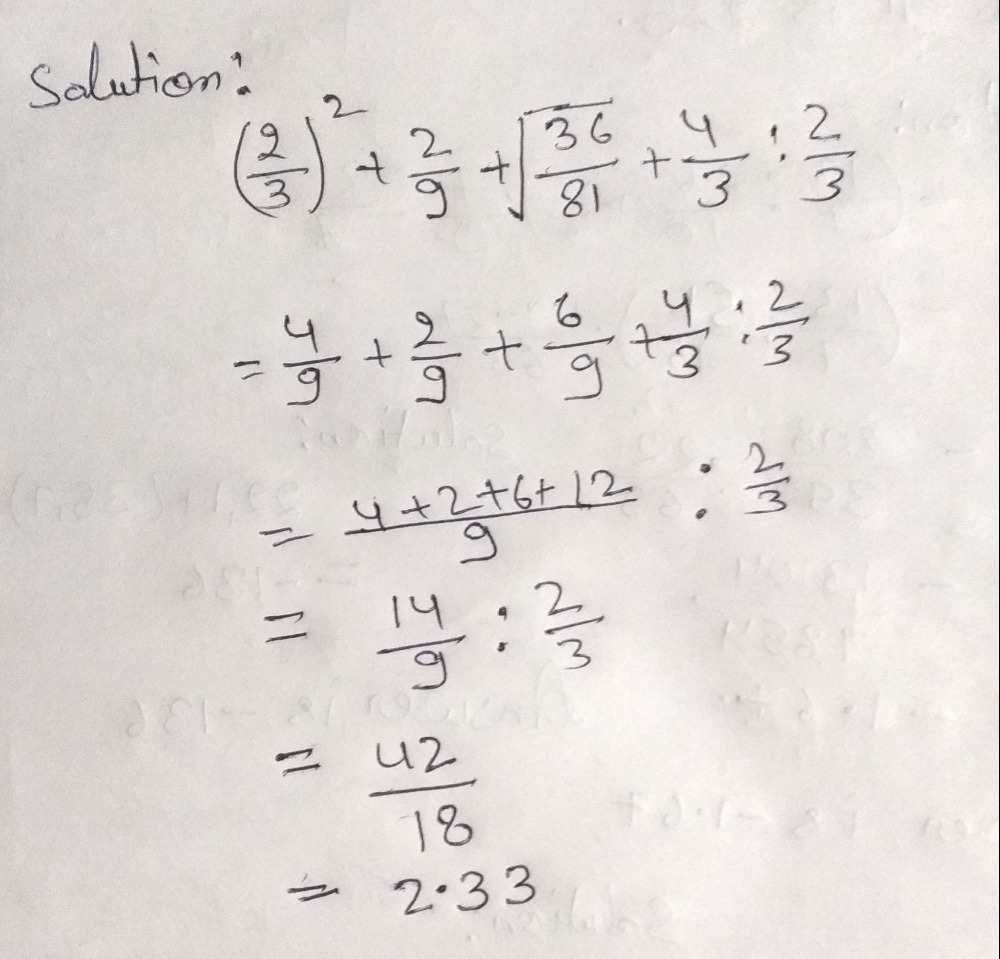 Solution:
(2/3)² + 2/9 + √(36/81) + 4/3 : 2/3
= 4/9 + 2/9 + 6/9 + 4/3 : 2/3
= (4+2+6+12)/9 : 2/3
= 14/9 : 2/3
= 42/18
= 2.33